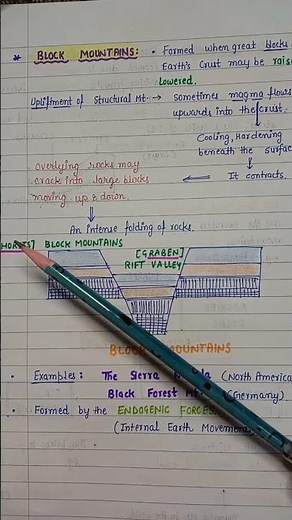 * BLOCK MOUNTAINS: • Formed when great blocks
Earth's Crust may be rais
lowered.
Upliftment of Structural Mt. → Sometimes magma flows
upwards into the crust.
Cooling, Hardening
beneath the surfac
overlying rocks may
crack into large blocks
moving up & down.
It contracts.
An intense folding of rocks.
HORSTS] BLOCK MOUNTAINS
[GRABEN]
RIFT VALLEY
BLOCK MOUNTAINS
• Examples: The Sierra (North America
Black Forest Mt. (Germany)
• Formed by the ENDOGENIC FORCES
(Internal Earth Movemen